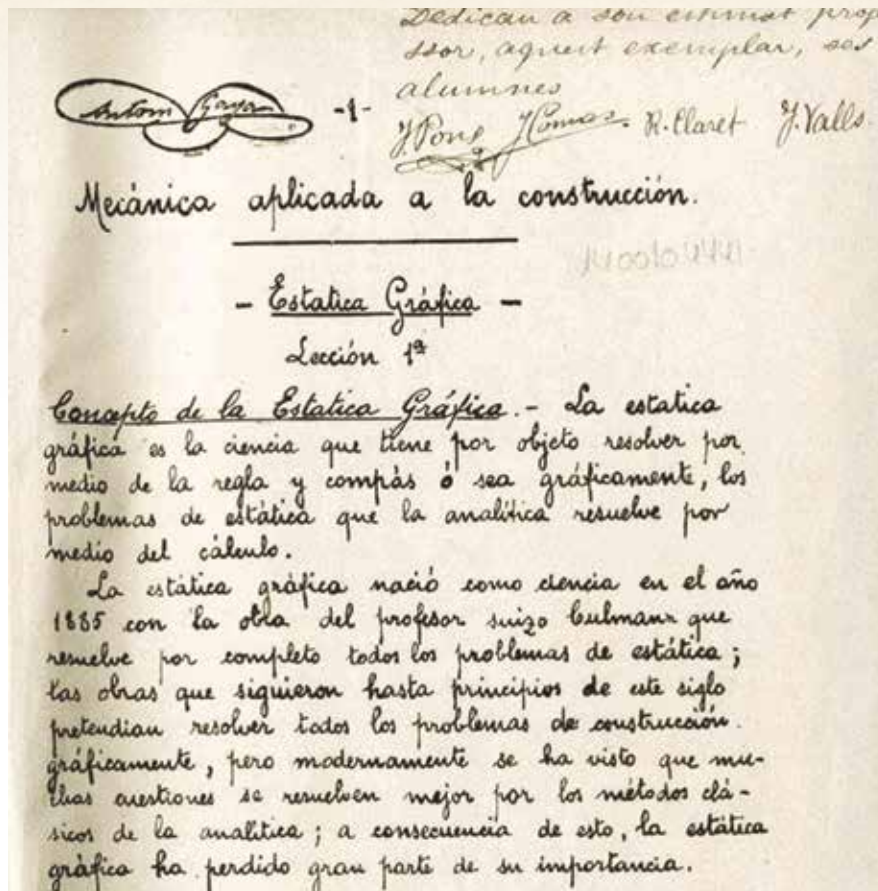 Dedican a son estimat prop
ssor, aquest exemplar, ses
alumnes
Antoni Gayan
-1-
J. Pons J Comas. R. Claret J. Valls.
Mecánica aplicada a la construcción.
- Estatica Gráfica -
Lección 1ª
Concepto de la Estatica Gráfica. - La estatica
gráfica es la ciencia que tiene por objeto resolver por
medio de la regla y compás ó sea gráficamente, los
problemas de estática que la analítica resuelve por
medio del cálculo.
La estática gráfica nació como ciencia en el año
1885 con la obra del profesor suizo Culmann que
resuelve por completo todos los problemas de estática;
las obras que siguieron hasta principios de este siglo
pretendian resolver todos los problemas de construcción
gráficamente, pero modernamente se ha visto que mu-
chas cuestiones se resuelven mejor por los métodos clá-
sicos de la analítica; a consecuencia de esto, la estática
gráfica ha perdido gran parte de su importancia.